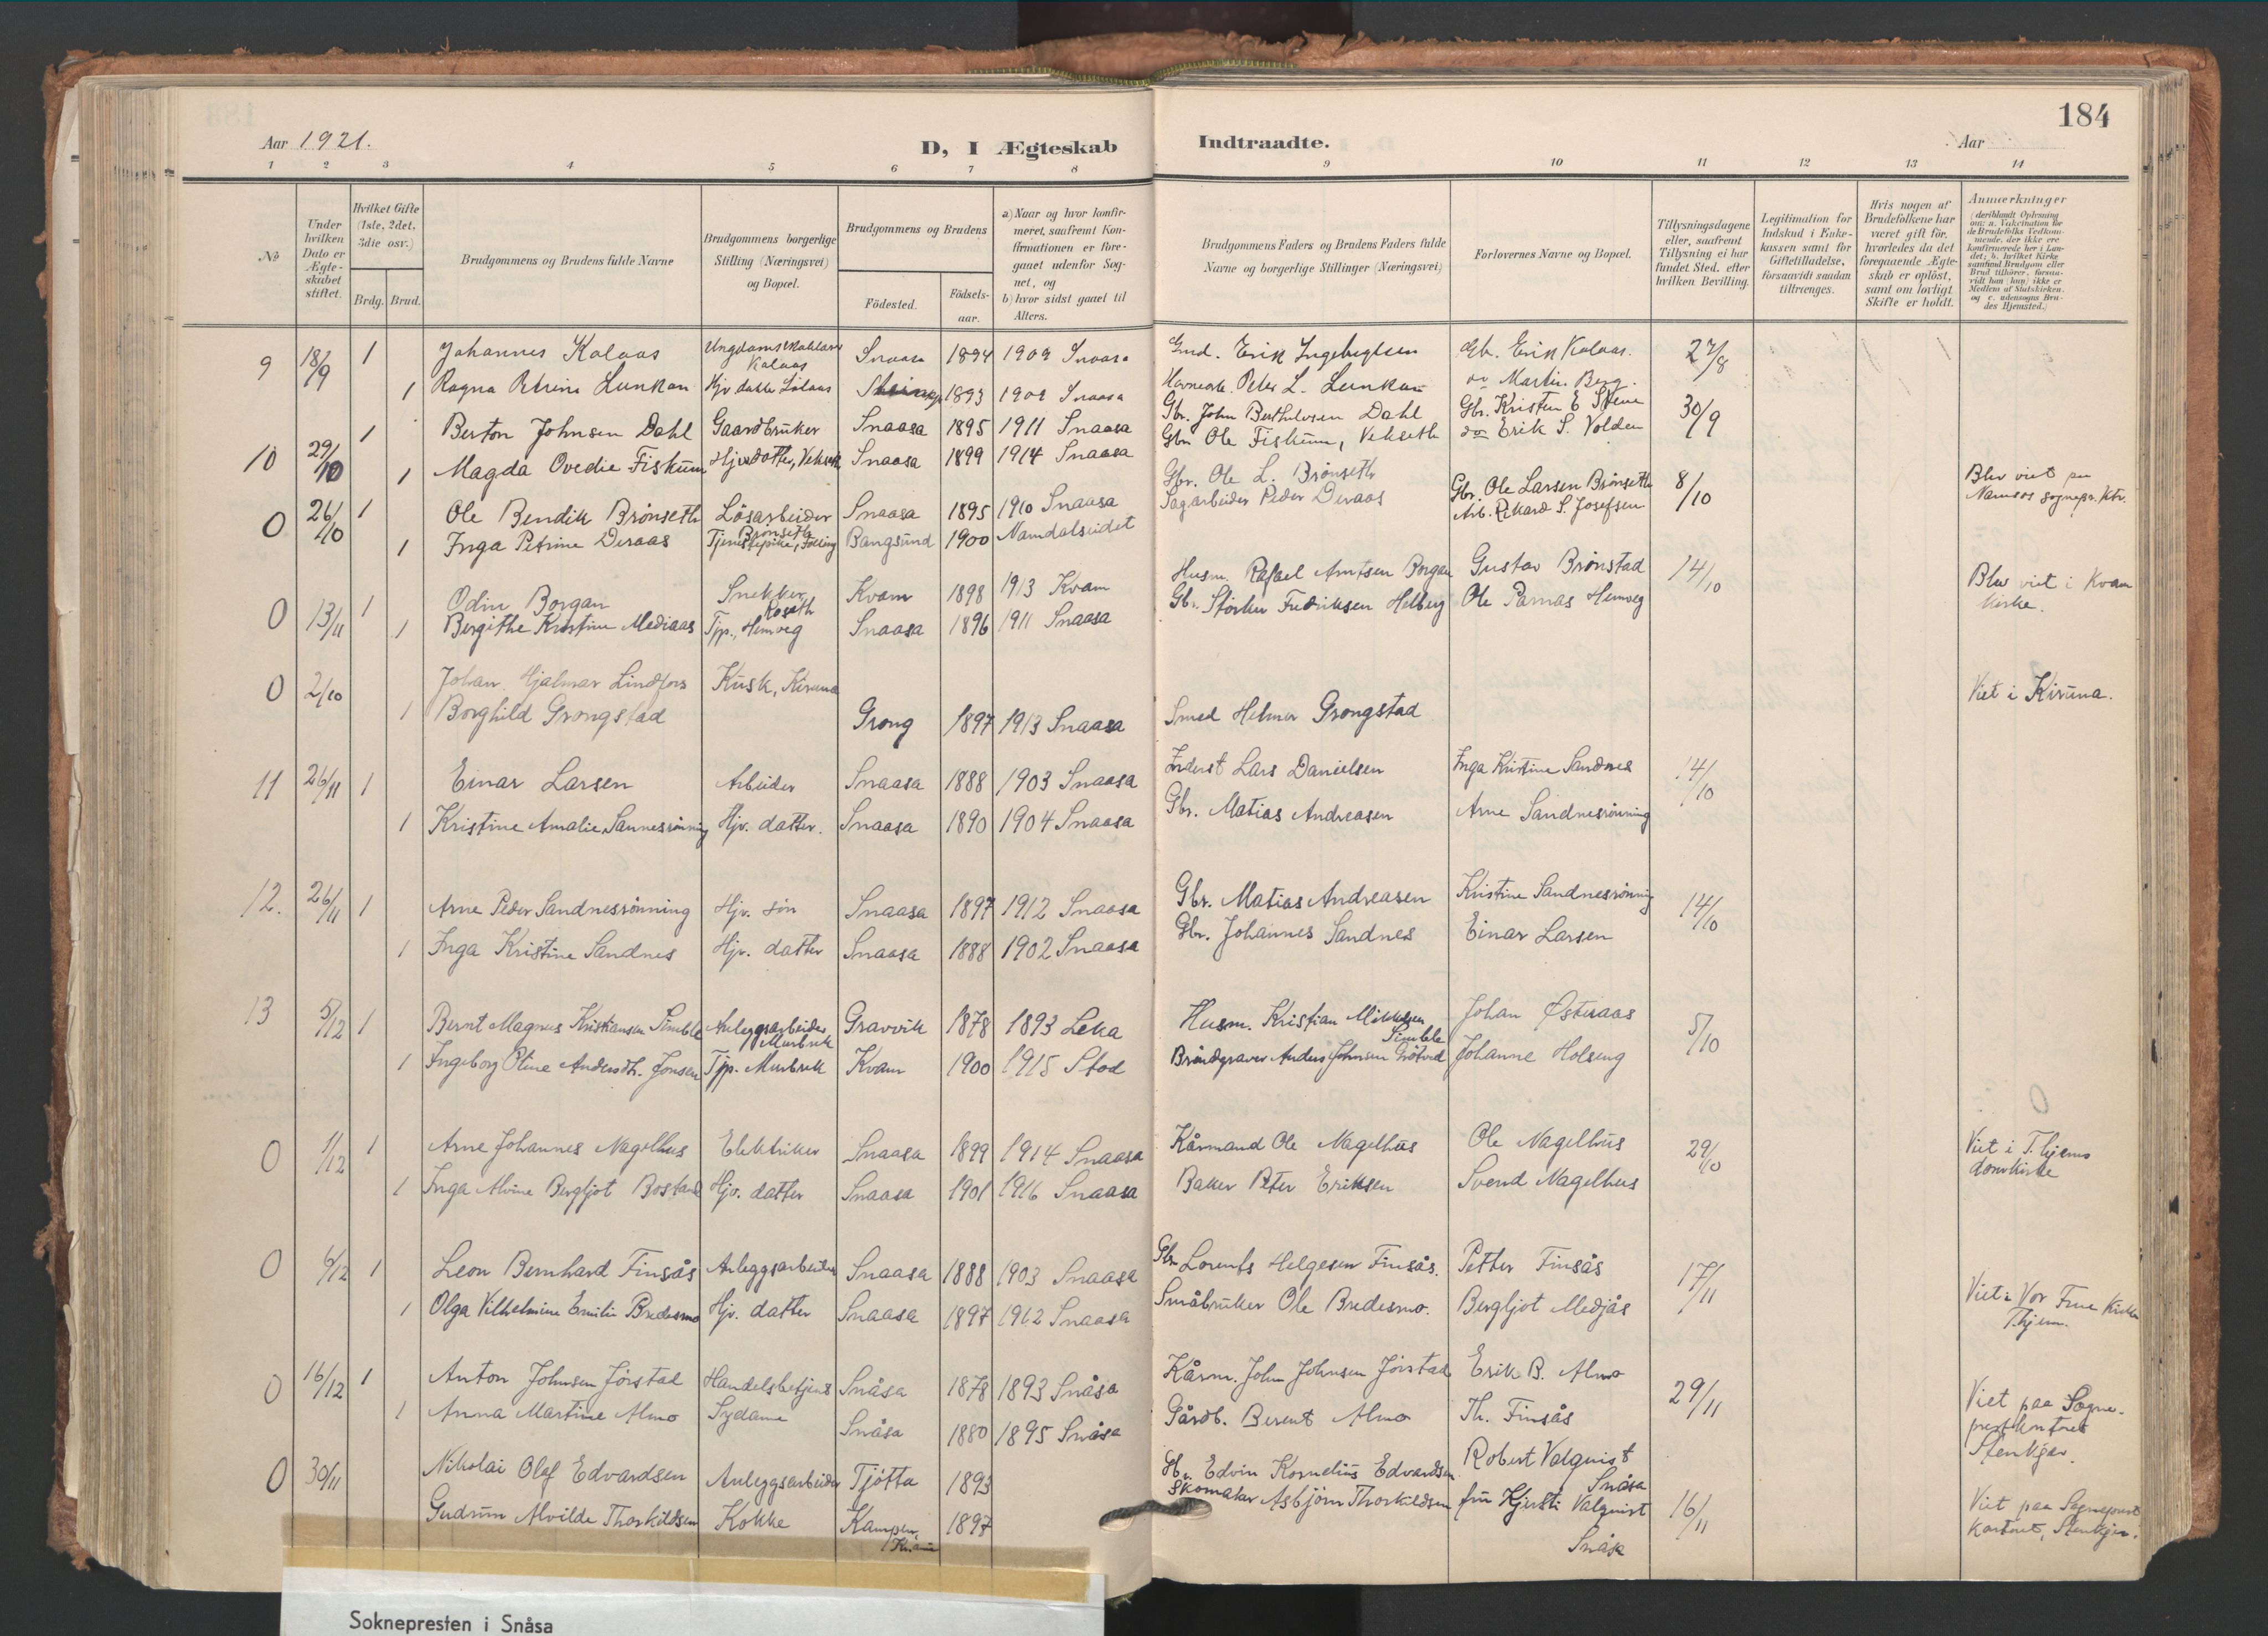 184
Aar 1921.
D, I Ægteskab
Indtraadte.
Aar
1 2 3 4 5 6 7 8 9 10 11 12 13 14
No
Under hvilken Dato er Ægteskabet stiftet.
Hvilket Gifte (1ste, 2det, 3die osv.)
Brdg. Brud.
Brudgommens og Brudens fulde Navne
Brudgommens borgerlige Stilling (Næringsvei) og Bopæl.
Brudgommens og Brudens
Födested.
Födsels-aar.
a) Naar og hvor konfirmeret, saafremt Konfirmationen er foregaaet udenfor Sognet, og
b) hvor sidst gaaet til Alters.
Brudgommens Faders og Brudens Faders fulde Navne og borgerlige Stillinger (Næringsvei)
Forlovernes Navne og Bopæl.
Tillysningsdagene eller, saafremt Tillysning ei har fundet Sted, efter hvilken Bevilling.
Legitimation for Indskud i Enkekassen samt for Giftetilladelse, forsaavidt saadan tiltrænges.
Hvis nogen af Brudefolkene har været gift för, hvorledes da det foregaaende Ægteskab er oplöst, samt om lovligt Skifte er holdt.
Anmærkninger
9 18/9 1 Johannes Kalaas Ungdomsskolelærer Kalaas Snaasa 1894 1909 Snaasa Erik Ingebrigtsen Gbr. Erik Kalaas. 27/8
1 Ragna Petrine Lunkan Hjv. datter 1893 1909 Snaasa Peter L. Lunkan do Martin Berg.
10 29/10 1 Berton Johnsen Dahl Gaardbruker Snaasa 1895 1911 Snaasa Gbr. John Berthelosen Dahl Gbr. Kristen E Stene 30/9
1 Magda Ovedie Fiskum Hjv. datter, Vekseth Snaasa 1899 1914 Snaasa Gbr. Ole Fiskum, Vekseth do Erik S. Volden
0 26/10 1 Ole Bendik Brönseth Lösarbeider Brönseth Snaasa 1895 1910 Snaasa Gbr. Ole L. Brönseth Gbr. Ole Larsen Brönseth 8/10 Blev viet paa Namsos sognepr. ktr.
1 Inga Petrine Deraas Tjenestepike, Bangsund 1900 Namdalseidet Sagarbeider Peder Deraas Arb. Rikard S. Josefsen
0 13/11 1 Odin Borgan Snekker, Kvam 1898 1913 Kvam Husm. Rafael Arntsen Borgan Gustav Brönstad 14/10 Blev viet i Kvam kirke.
1 Bergithe Kristine Mediaas Tjp., Hemveg Snaasa 1896 1911 Snaasa Gbr. Störker Fredriksen Helberg Ole Parnas Hemveg
0 2/10 Johan Hjalmar Lindfors Kusk, Kiruna Viet i Kiruna.
1 Borghild Grongstad Grong 1897 1913 Snaasa Smed Helmer Grongstad
11 26/11 1 Einar Larsen Arbeider Snaasa 1888 1903 Snaasa Inderst Lars Danielsen Inga Kristine Sandnes 14/10
1 Kristine Amalie Sannesrönning Hjv. datter. Snaasa 1890 1904 Snaasa Gbr. Matias Andreasen Arne Sandnesrönning
12. 26/11 1 Arne Peder Sandnesrönning Hjv. sön Snaasa 1897 1912 Snaasa Gbr. Matias Andreasen Kristine Sandnesrönning 14/10
1 Inga Kristine Sandnes Hjv. datter Snaasa 1888 1902 Snaasa Gbr. Johannes Sandnes Einar Larsen
13 5/12 1 Bernt Magnus Kristiansen Simble Anleggsarbeider Murbrek Gravvik 1878 1893 Leka Husm. Kristian Mikkelsen Simble Johan Østeraas 5/10
1 Ingeborg Oline Andersdtr. Jonsen Tjp. Murbrek Kvam 1900 1915 Stod Bröndgraver Anders Johnsen Johanne Holseng
0 1/12 1 Arne Johannes Nagelhus Elektriker Snaasa 1899 1914 Snaasa Kårmand Ole Nagelhus Ole Nagelhus 29/10 Viet i T.hjems domkirke
1 Inga Alvine Bergljot Bostad Hjv. datter Snaasa 1901 1916 Snaasa Baker Peter Eriksen Svend Nagelhus
0 6/12 1 Leon Bernhard Finsås Anleggsarbeider Snaasa 1888 1903 Snaasa Gbr Lorents Helgesen Finsås. Petter Finsås 17/11 Viet i Vor Frue Kirke T.hjem.
1 Olga Vilhelmine Emilie Bredesmo Hjv. datter Snaasa 1897 1912 Snaasa Småbruker Ole Bredesmo. Bergljot Medjås
0 16/12 1 Anton Johnsen Jörstad Handelsbetjent Snåsa 1878 1893 Snåsa Kårm. John Johnsen Jörstad Erik B. Almo 29/11 Viet paa Sogneprestkontoret Stenkjær.
1 Anna Martine Almo Sydame Snåsa 1880 1895 Snåsa Gårdb. Berent Almo Th. Finsås
0 30/11 Nikolai Olaf Edvardsen Anleggsarbeider Tjötta 1893 Gbr. Edvin Kornelius Edvardsen Robert Valquist Snåsa 16/11 Viet paa Sogneprestkontoret, Stenkjær.
Gudrun Alvilde Thorkildsen Kokke 1897 Skomaker Asbjörn Thorkildsen fru Kjersti Valquist Snåsa
Soknepresten i Snåsa